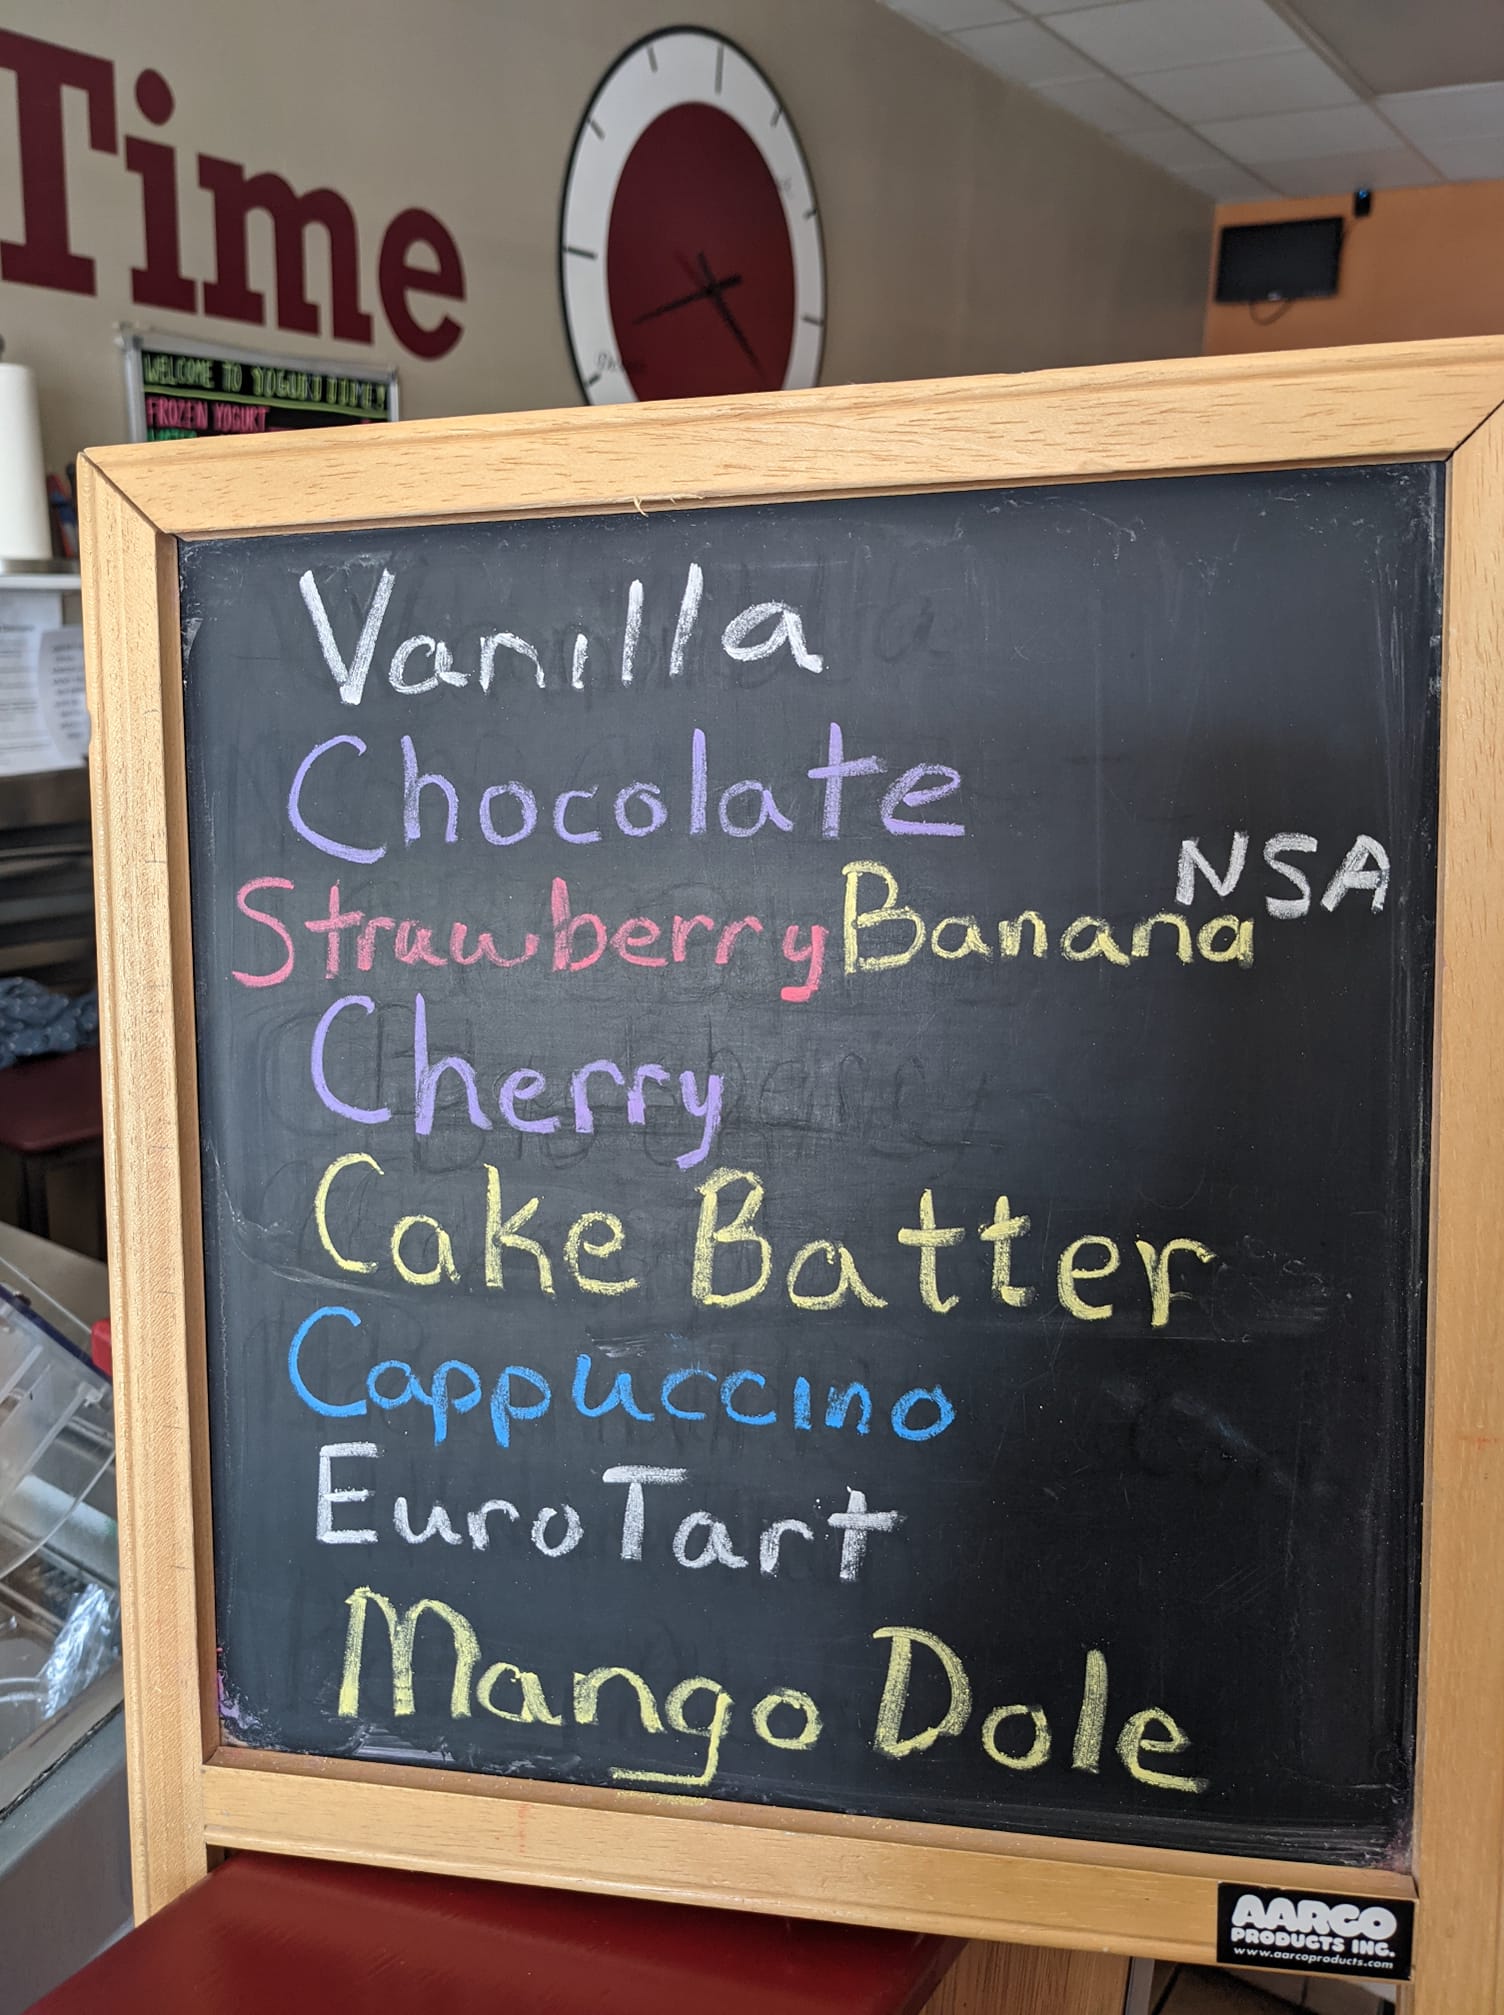 Time
WELCOME TO YOGURT TIME!
FROZEN YOGURT
Vanilla
Chocolate
Strawberry Banana NSA
Cherry
Cake Batter
Cappuccino
Euro Tart
Mango Dole
AARCO
PRODUCTS INC.
www.aarcoproducts.com